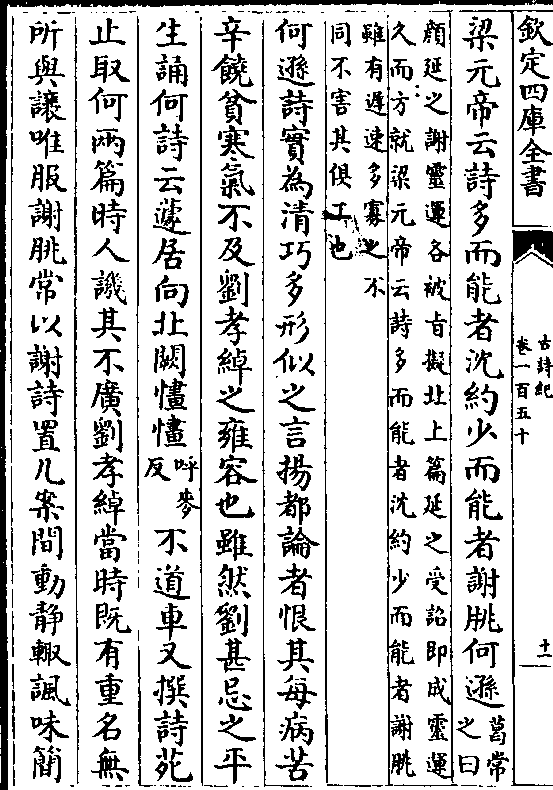 欽定四庫全書
古詩紀
卷一百五十
十一
梁元帝云詩多而能者沈約少而能者謝朓何遜葛常之曰
顔延之謝靈運各被旨擬北上篇延之受詔即成靈運
久而方就梁元帝云詩多而能者沈約少而能者謝朓
雖有遲速多寡之不
同不害其俱工也
何遜詩實為清巧多形似之言揚都論者恨其每病苦
辛饒貧寒氣不及劉孝綽之雍容也雖然劉甚忌之平
生誦何詩云蘧居向北闕㦎㦎呼麥反不道車又撰詩苑
止取何兩篇時人譏其不廣劉孝綽當時既有重名無
所與讓唯服謝朓常以謝詩置几案間動静輙諷味簡